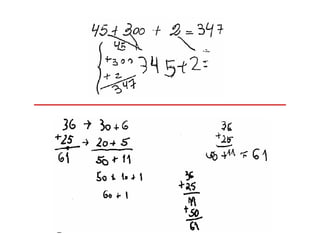 45+300 + 2=347
45
+300
+2
347
345+2=
36 → 30+6
+25 → 20+5
61 50+11
50+10+1
60+1
36
+25
11
+50
61
36
+25
50+11=61